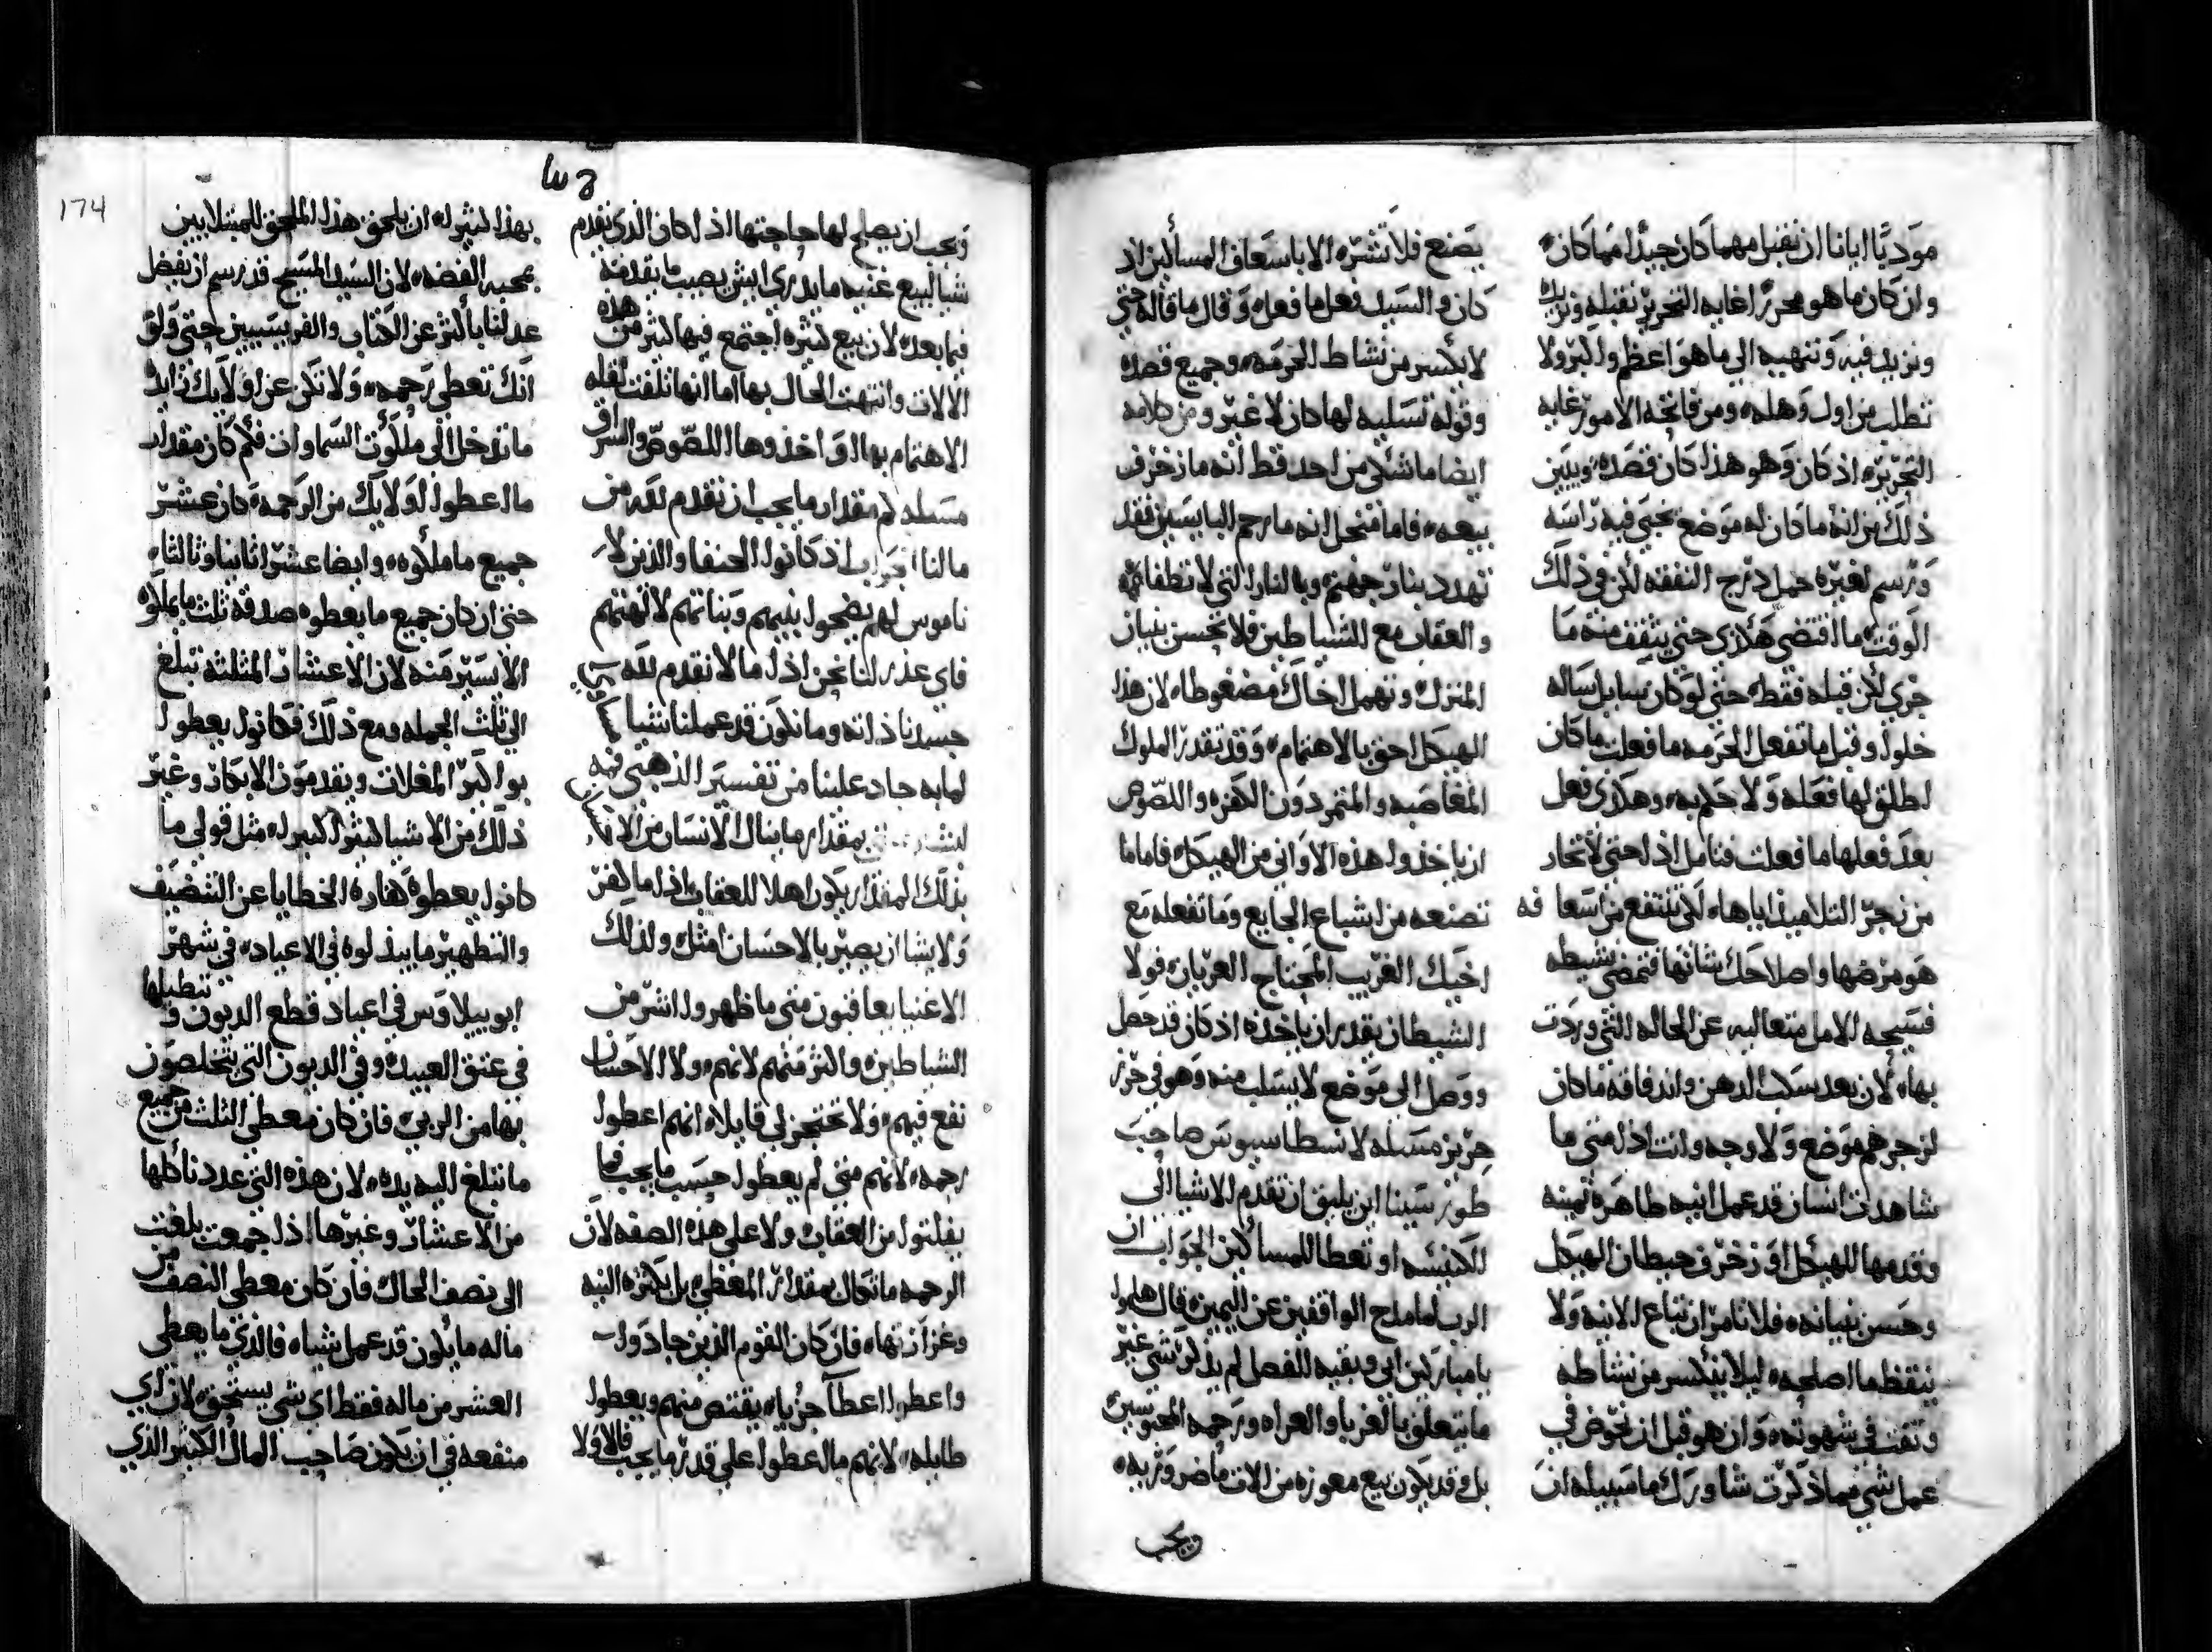 موديًا ايانا ان نقبل مهما كان جيدًا مهما كان
وان كان ما هو محررًا غايه التحرير نقبله ونزيده
ونزيد فيه وننهيه الي ما هو اعظم واكبر ولا
نطلب من اول وهله ومن فاتحه الامور غايه
التحرير اذ كان وهو هذا كان قصده ويبين
ذلك من انه ما كان له موضع يحني فيه راسه
ورسم لغيره حمل درج النفقه لكن في ذلك
الوقت ما اقتضي هكذي حتي يثقف منه ما
جري لكن قبله فقط حتي لو كان سايل ساله
خلوا وقبل ما تفعل الحرمه ما فعلت ما كان
اطلق لها فعله ولا حكم به وهكذي فعل
بعد فعلها ما فعلت فتامل اذا حتي لا تحار
من زجر التلاميذ اياها لكي تنتفع من اسعافه
هو مرضها واصلاحك شانها فتمضي نشيطه
فسيحه الامل متعاليه عن الحاله التي وردت
بها لان بعد سكب الدهن واندفاقه ما كان
لزجرهم موضع ولا وجه وانت اذا متي ما
شاهدت انسان قد عمل انيه طاهره ثمينه
وقدمها للهيكل او زخرف حيطان الهيكل
وحسن بنيانه فلا تامر ان تباع الانيه ولا
ينتقض ما اصلحه ليلا ينكسر من نشاطه
وتفت في شهوته وان هو قبل ان يخوض في
عمل شي مما ذكرت شاورك ما سبيله ان
يصنع فلا تشره الا باسعاف المسألين اذ
كان والسيد فعل ما فعله وقال ما قاله حتي
لا يكسر من نشاط الحرمه وجميع قصده
وقوله تسليه لها كان لا غير ومن كلامه
ايضا ما شكي من احد قط انه ما زخرف
بيعه فاما من اجل انه ما رحم البايسين فقد
تهدد بنار جهنم وبالنار التي لا تطفا ثمه
والعقاب مع الشياطين فلا تحسن بنيان
المنزل وتهمل اخاك مضغوطا لان هذا
الهيكل احق بالاهتمام وقد تقدر الملوك
المغاصبه والمتمردون الكفره واللصوص
ان ياخذوا هذه الاواني من الهيكل فاما ما
تصنعه من اشباع الجايع وما تفعله مع
اخيك الغريب المحتاج العريان فولا
الشيطان يقدر ان ياخذه اذ كان قد حصل
ووصل الي موضع لا يسلب منه وهو في حرز
حريز مسله لانسطاسيوس صاحب
طور سينا اين يليق ان تقدم الاشيا الي
الكنيسه او تعطا للمساكين الجواب ان
الرب لما مدح الواقفين عن اليمين قال هلموا
يا مباركين ابي وبقيه الفصل لم يذكر شي غير
ما يتعلق بالغربا والعراه ورحمه المحبوسين
بل وقد يكون بيع معوزه من الات ماضروريه
ويجب
ويجب ان يصلح لها حاجتها اذ كان الذي يقدم
شيا لبيع غنيه ما يدري ايش يصيب ما يقدمه
فيما بعد لان بيع كثيره اجتمع فيها كثير من هذه
الالات وانتهت الحال بها اما انها تلفت لقله
الاهتمام بها او اخذوها اللصوص والسراق
مسله كم مقدار ما يجب ان نقدم لله من
مالنا جواب اذ كانوا الحنفا والذين لا
ناموس لهم يضحوا بنيهم وبناتهم لالهتهم
فاي عذر لنا نحن اذا ما لا نقدم لله
جسدنا ذاته وما نكون قد عملنا شيا
لمابه جاد علينا من تفسير الذهبي فمه
بمقدار ما ينال الانسان من الا
بذلك المقدار يكون اهلا للعقاب اذا ما كفر
ولا يشا ان يصير بالاحسان امثل ولذلك
الاغنيا يعاقبون متي ما ظهروا اشر من
الشياطين واكثر منهم لانهم ولا الاحسان
نفع فيهم ولا تحتجز لي قايلا انهم اعطوا
رحمه لانهم متي لم يعطوا حسب ما يجب فما
يفلتوا من العقاب ولا علي هذه الصفه لان
الرحمه ما تكال بمقدار المعطي بل بكثره النيه
وغزارتها فان كان القوم الذين جادوا
واعطوا اعطآ جزيا يقتص منهم ويعطوا
طايله لانهم ما اعطوا علي قدر ما يجب فالاولا
بهذا كثيرا ان يلحق هذا الملحق للمبتلايين
بمحبه الفضه لان السيد المسيح قد رسم ان يفضل
عدلنا باكثر عن الكتاب والفريسيين حتي ولو
انك تعطي رحمه ولا تكن عن اولايك زايدًا
ما تدخل الي ملكوت السماوات فكم كان مقدار
ما اعطوا اولايك من الرحمه كان عشر
جميع ما ملكوه وايضا عشرًا ثانيا وثالثا
حتي ان كان جميع ما يعطوه صدقه ثلث ما يملكوه
الا يسير منه لان الاعشار المثلثه تبلغ
الي ثلث الجمله ومع ذلك فكانوا يعطوا
بواكير المغلات ويقدمون الابكار وغير
ذلك من الاشيا كثيرًا كبيرا مثل قولي ما
كانوا يعطوه كفاره الخطايا عن التنضيف
والتطهير ما يبذلوه في الاعياد في شهر
ايوبيلاوس في اعياد قطع الديون وتبطيلها
في عتق العبيد وفي الديون التي يتخلصون
بها من الربي فان كان معطي الثلث من جميع
ما تبلغ اليه يده لان هذه التي عددناكها
من الاعشار وغيرها اذا جمعت بلغت
الي نصف الحال فان كان معطي النصف من
ماله ما يكون قد عمل شيا فالذي ما يعطي
العشر من ماله فقط اي شي يستحق لان اي
منفعه في ان يكون صاحب المال الكثير الذي
174